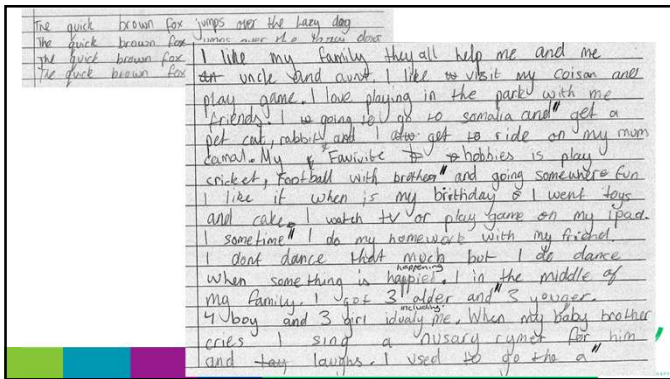 The quick brown fox jumps over the lazy dog
The quick brown fox jumps over the
The quick brown fox
The quick brown fox
I like my family they all help me and me
uncle and aunt. I like to visit my coisan and
play game. I love playing in the park with me
friends. I going to go to somalia and" get a
pet cat, rabbit and I get to ride on my mum
camal. My Favivite hobbies is play
cricket, Football with brother" and going somewhere fun
I like it when is my birthday I went toys
and cake. I watch tv or play game on my ipad.
I sometime" I do my homework with my friend.
I dont dance that much but I do dance
happening
when something is happiel. I in the middle of
my family. I got 3" alder and" 3 youger.
including
4 boy and 3 girl me. When my baby brother
cries I sing a nusary rymes for him
and laughs. I used to go the a"